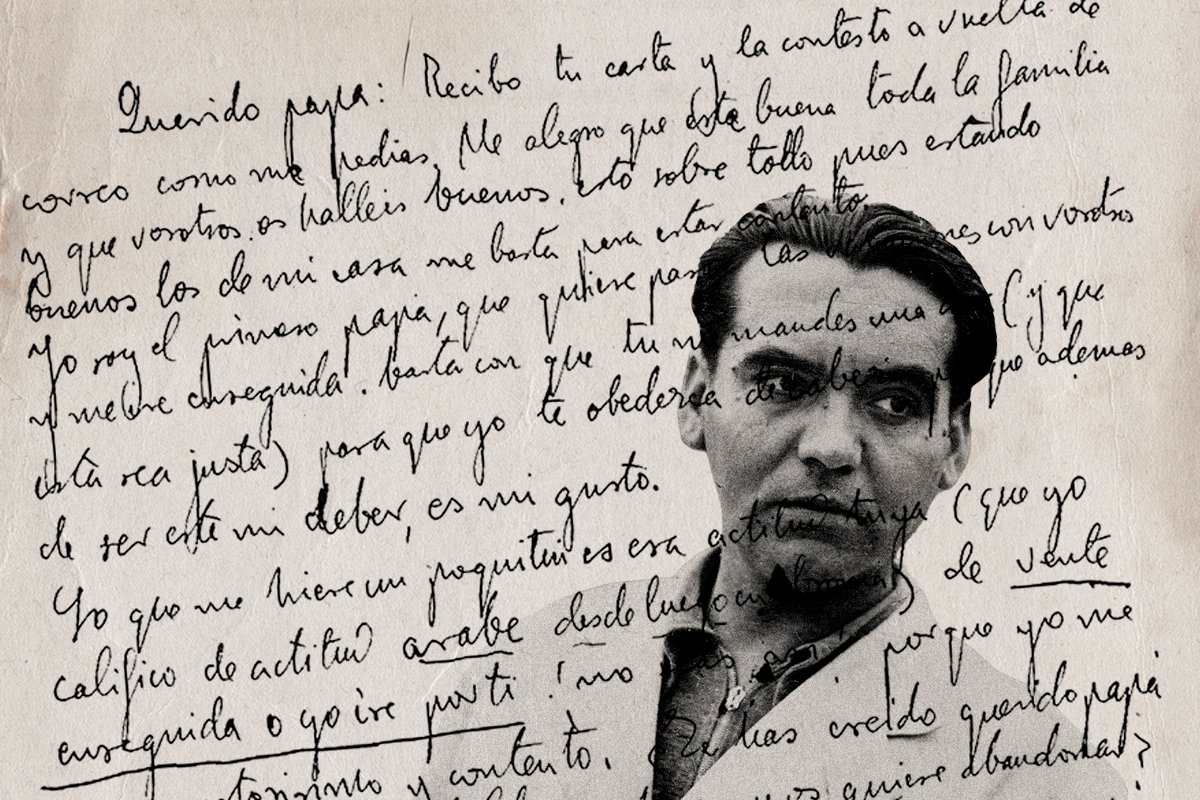 Querido papa: Recibo tu carta y la contesto a vuelta de
correo como me pedias. Me alegro que esta buena toda la familia
y que vosotros os halleis buenos, esto sobre todo pues estando
buenos los de mi casa me basta para estar contento
Yo soy el primero papa, que quiere pasar las con vosotros
y me iré enseguida. basta con que tu mandes una (y que
esta sea justa) para que yo te obedezca que ademas
de ser este mi deber, es mi gusto.
Lo que me hiere un poquitin es esa actitud tuya (que yo
califico de actitud arabe desde luego en broma) de vente
enseguida o yo ire por ti! no seas asi, porque yo me
y contento. ¿Te has creido querido papá
quiere abandonar?